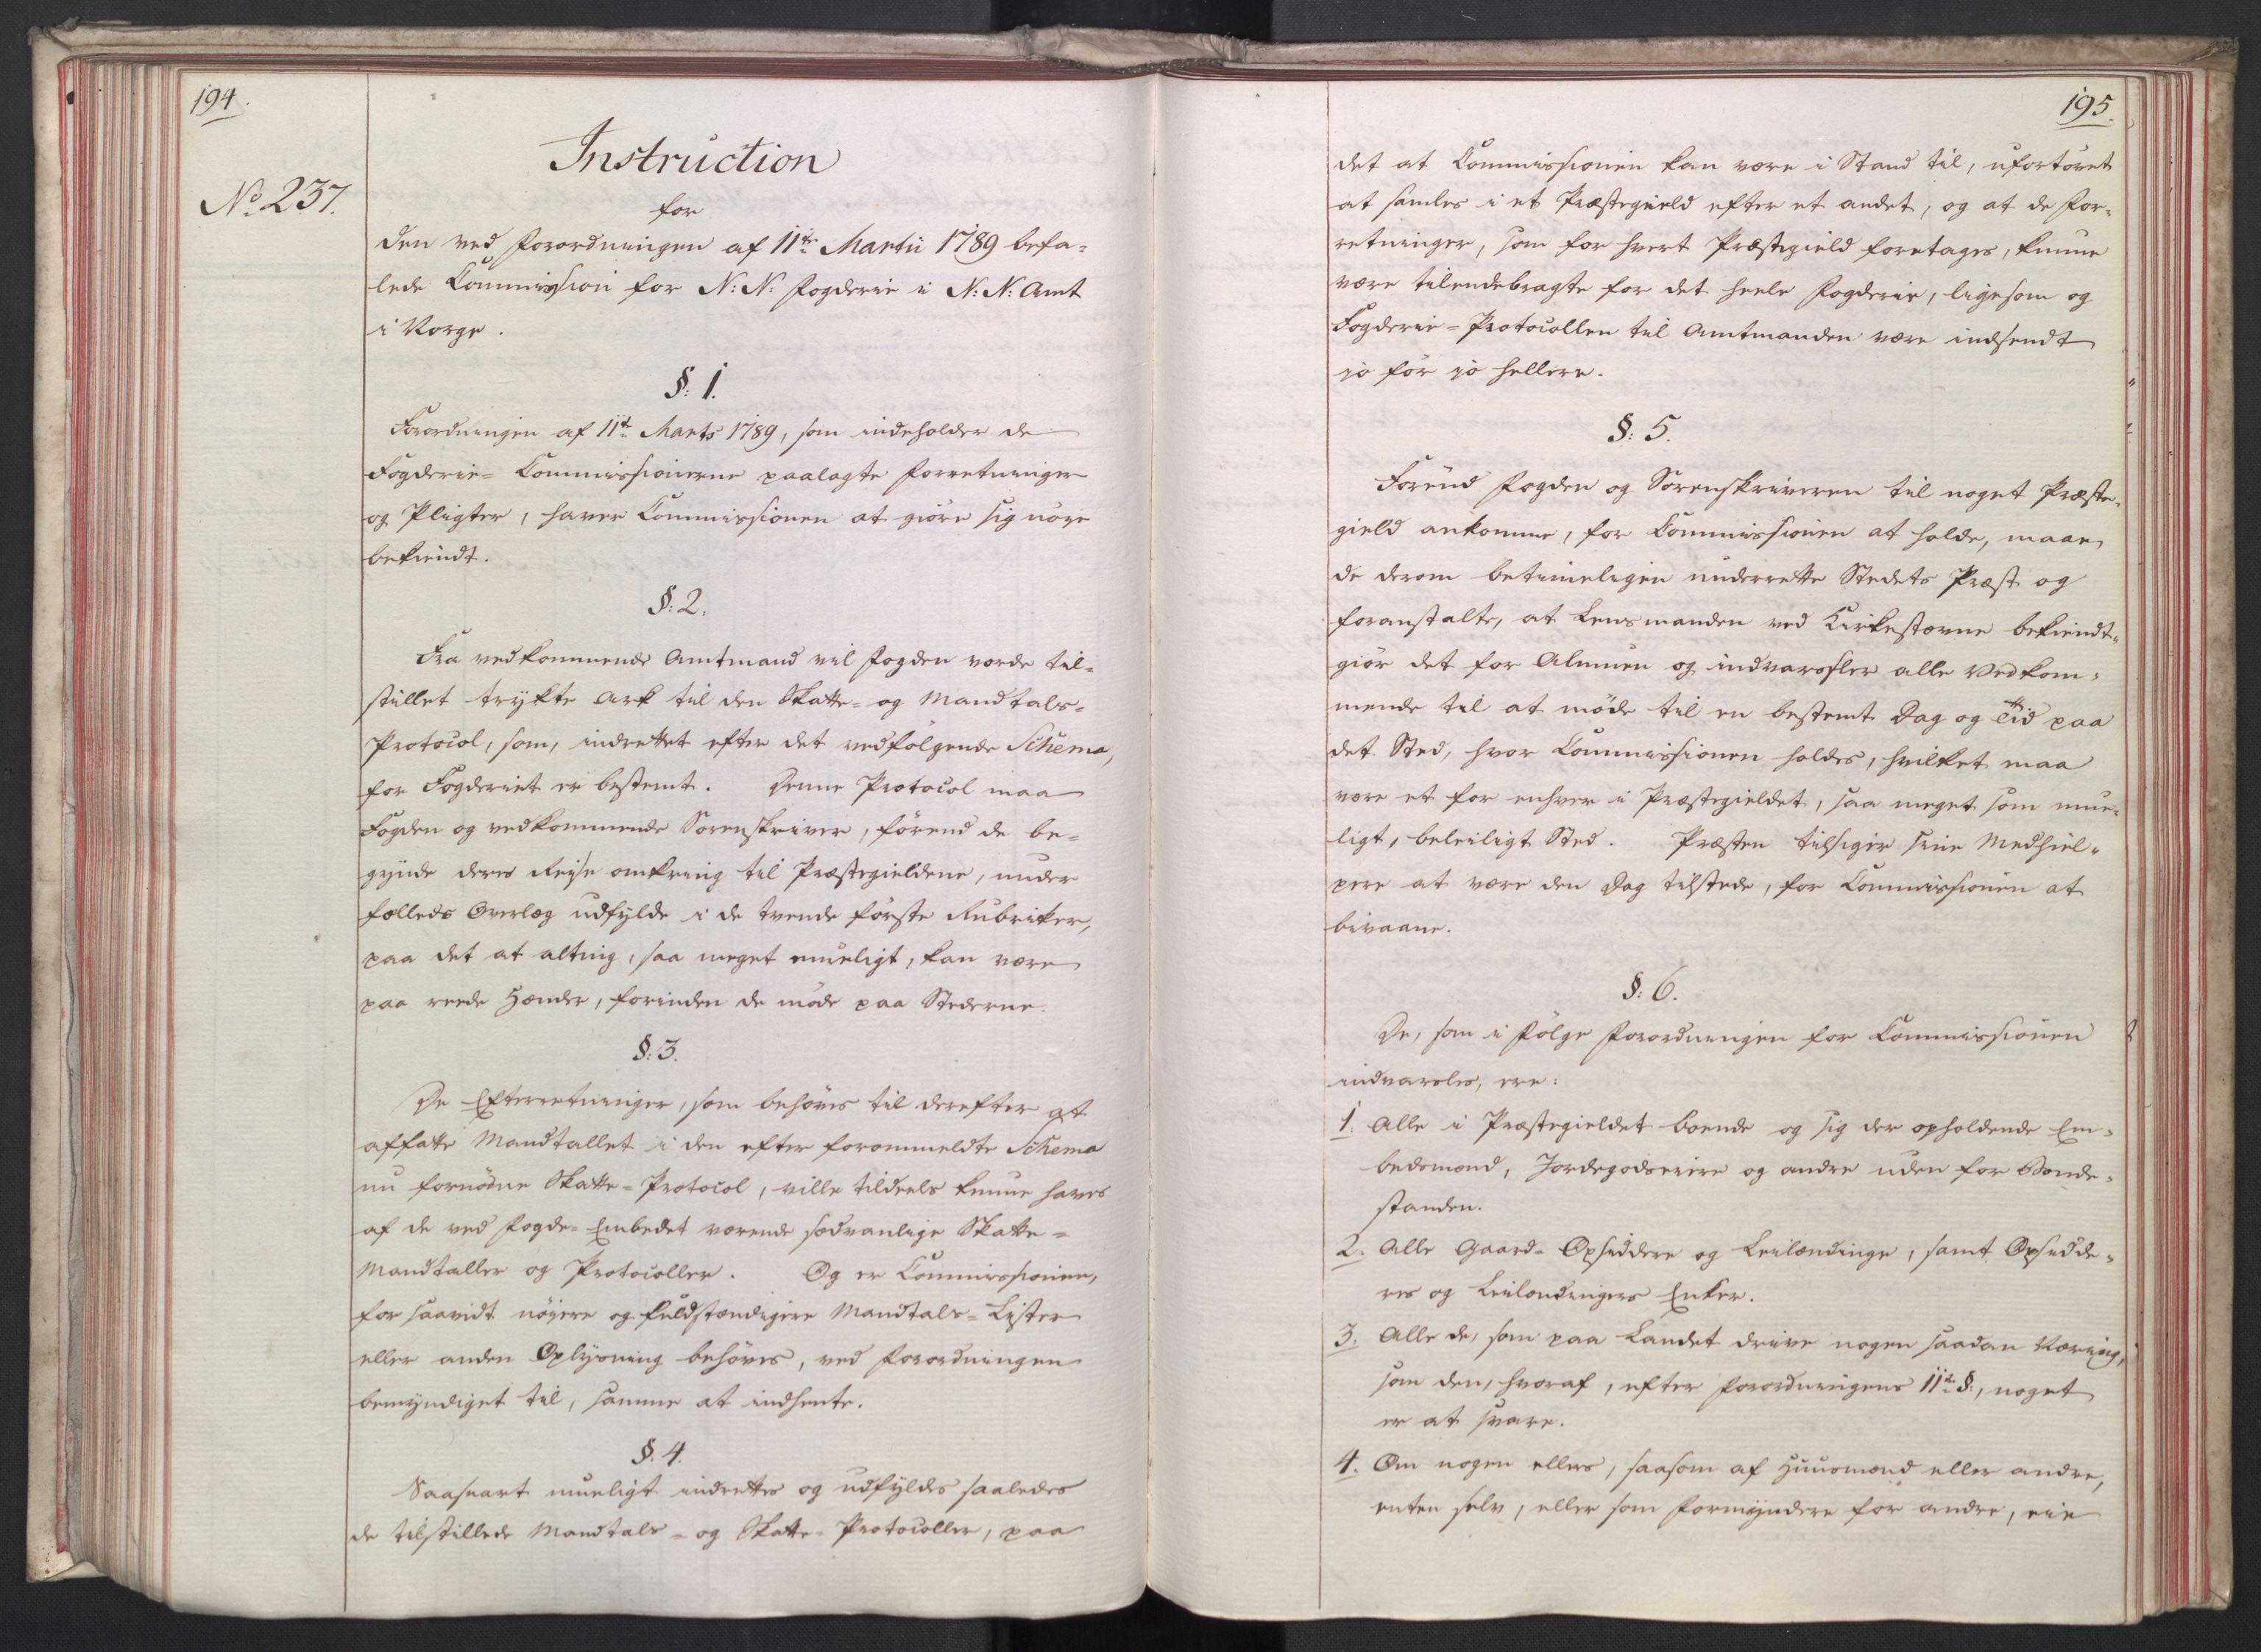 194.
Instruction
No. 237.
for
den ved Forordningen af 11te Martii 1789 befa-
lede Commission for N: N: Fogderie i N: N: Amt
i Norge.
§: 1.
Forordningen af 11te Marts 1789, som indeholder de
Fogderie- Commissionerne paalagte Forretninger
og Pligter, haver Commissionen at giöre sig nöye
bekiendt.
§: 2.
Fra vedkommende Amtmand vil Fogden vorde til-
stillet trykte Ark til den Skatte- og Mandtals-
Protocol, som, indrettet efter det vedfölgende Schema,
for Fogderiet er bestemt. Denne Protocol maa
Fogden og vedkommende Sorenskriver, förend de be-
gynde deres Reise omkring til Præstegieldene, under
fælleds Overlæg udfylde i de tvende förste Rubriker,
paa det at alting, saa meget mueligt, kan være
paa reede Hænder, forinden de möde paa Stederne.
§: 3.
De Efterretninger, som behöves til derefter at
affatte Mandtallet i den efter forommeldte Schema
nu fornödne Skatte-Protocol, ville tildeels kunne haves
af de ved Fogde-Embedet værende sædvanlige Skatte-
Mandtaller og Protocoller. Og er Commissionen,
for saavidt nöyere og fuldstændigere Mandtals-Lister
eller anden Oplysning behöves, ved Forordningen
bemyndiget til, samme at indhente.
§. 4.
Saasnart mueligt indrettes og udfyldes saaledes
de tilstillede Mandtals- og Skatte-Protocoller, paa
195.
det at Commissionen kan være i Stand til, ufortövet
at samles i et Præstegield efter et andet, og at de For-
retninger, som for hvert Præstegield foretages, kunne
være tilendebragte for det heele Fogderie, ligesom og
Fogderie-Protocollen til Amtmanden være indsendt
jo för jo hellere.
§: 5.
Forend Fogden og Sorenskriveren til noget Præste-
gield ankomme, for Commissionen at holde, maae
de derom betimeligen underrette Stedets Præst og
foranstalte, at Lensmanden ved Kirkestævne bekiendt-
giör det for Almuen og indvarsler alle Vedkom-
mende til at möde til en bestemt Dag og Tid paa
det Sted, hvor Commissionen holdes, hvilket maa
være et for enhver i Præstegieldet, saa meget som mue-
ligt, beleiligt Sted. Præsten tilsiger sine Medhiel-
pere at være den Dag tilstede, for Commissionen at
bivaane.
§: 6.
De, som i Fölge Forordningen for Commissionen
indvarsles, ere:
1. Alle i Præstegieldet boende og sig der opholdende Em-
bedsmænd, Jordegodseiere og andre uden for Bonde-
standen.
2. Alle Gaard-Opsiddere og Leilændinge, samt Opsidde-
res og Leilændingers Enker.
3. Alle de, som paa Landet drive nogen saadan Næring,
som den, hvoraf, efter Forordningens 11te §:, noget
er at svare.
4. Om nogen ellers, saasom af Huusmænd eller andre,
enten selv, eller som Formyndere for andre, eie